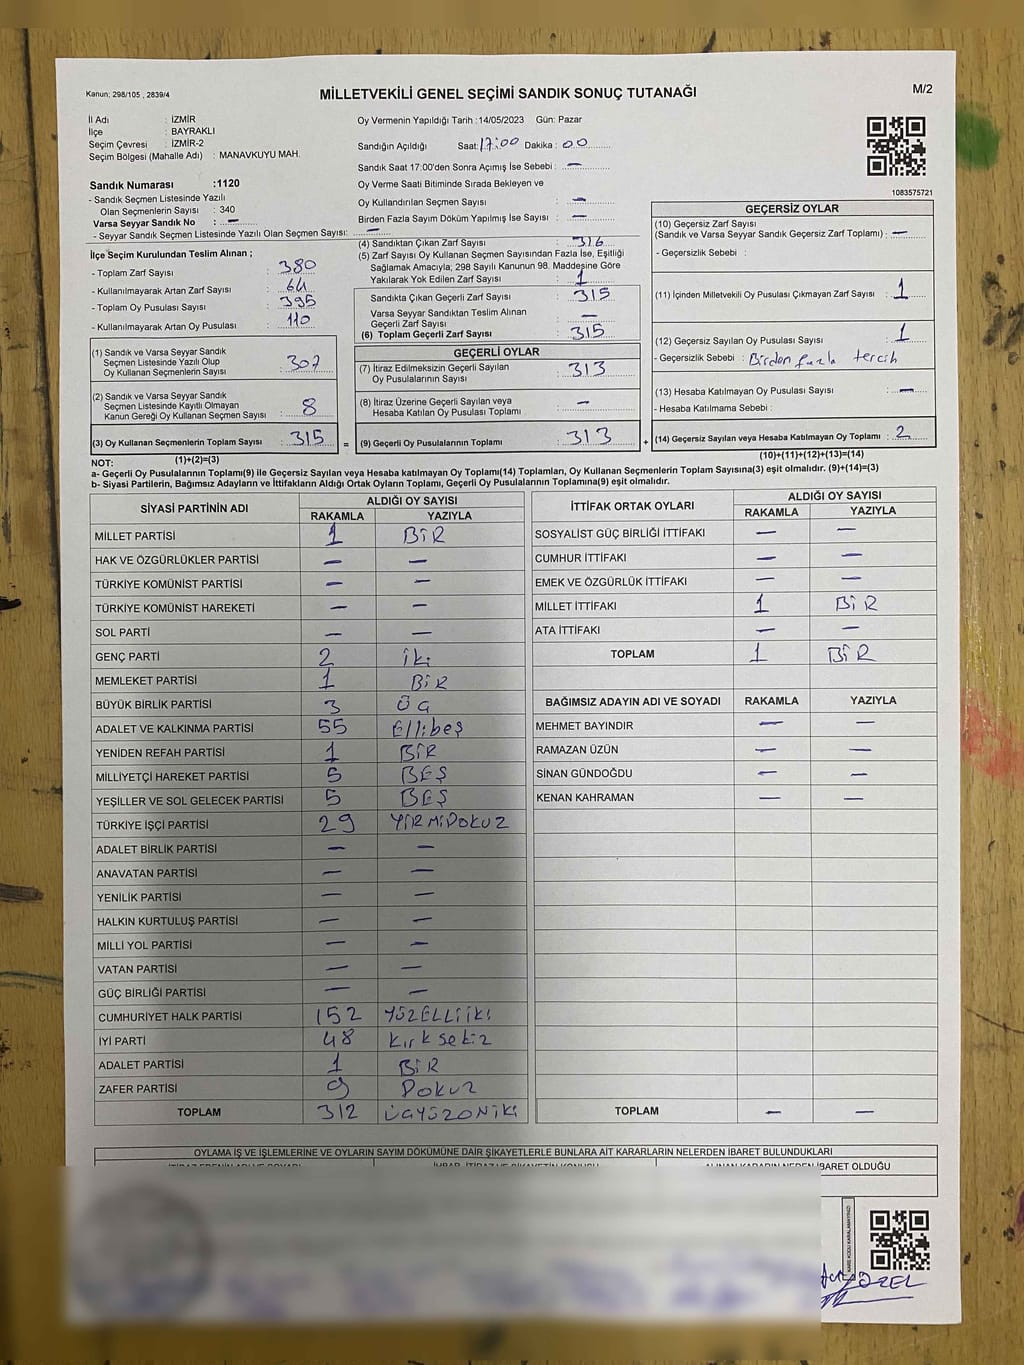 Kanun; 298/105 , 2839/4
MİLLETVEKİLİ GENEL SEÇİMİ SANDIK SONUÇ TUTANAĞI
M/2
İl Adı : İZMİR
İlçe : BAYRAKLI
Seçim Çevresi : İZMİR-2
Seçim Bölgesi (Mahalle Adı) : MANAVKUYU MAH.
Sandık Numarası :1120
- Sandık Seçmen Listesinde Yazılı
Olan Seçmenlerin Sayısı : 340
Varsa Seyyar Sandık No : —
- Seyyar Sandık Seçmen Listesinde Yazılı Olan Seçmen Sayısı: —
Oy Vermenin Yapıldığı Tarih :14/05/2023 Gün: Pazar
Sandığın Açıldığı Saat: 17:00 Dakika : 00
Sandık Saat 17:00'den Sonra Açımış İse Sebebi : —
Oy Verme Saati Bitiminde Sırada Bekleyen ve
Oy Kullandırılan Seçmen Sayısı : —
Birden Fazla Sayım Döküm Yapılmış İse Sayısı : —
1083575721
İlçe Seçim Kurulundan Teslim Alınan ;
- Toplam Zarf Sayısı : 380
- Kullanılmayarak Artan Zarf Sayısı : 64
- Toplam Oy Pusulası Sayısı : 395
- Kullanılmayarak Artan Oy Pusulası : 110
(1) Sandık ve Varsa Seyyar Sandık
Seçmen Listesinde Yazılı Olup
Oy Kullanan Seçmenlerin Sayısı : 307
(2) Sandık ve Varsa Seyyar Sandık
Seçmen Listesinde Kayıtlı Olmayan
Kanun Gereği Oy Kullanan Seçmen Sayısı : 8
(3) Oy Kullanan Seçmenlerin Toplam Sayısı : 315
(1)+(2)=(3)
(4) Sandıktan Çıkan Zarf Sayısı : 316
(5) Zarf Sayısı Oy Kullanan Seçmen Sayısından Fazla İse, Eşitliği
Sağlamak Amacıyla; 298 Sayılı Kanunun 98. Maddesine Göre
Yakılarak Yok Edilen Zarf Sayısı : 1
Sandıkta Çıkan Geçerli Zarf Sayısı : 315
Varsa Seyyar Sandıktan Teslim Alınan
Geçerli Zarf Sayısı : —
(6) Toplam Geçerli Zarf Sayısı : 315
GEÇERLİ OYLAR
(7) İtiraz Edilmeksizin Geçerli Sayılan
Oy Pusulalarının Sayısı : 313
(8) İtiraz Üzerine Geçerli Sayılan veya
Hesaba Katılan Oy Pusulası Toplamı : —
= (9) Geçerli Oy Pusulalarının Toplamı : 313
GEÇERSİZ OYLAR
(10) Geçersiz Zarf Sayısı
(Sandık ve Varsa Seyyar Sandık Geçersiz Zarf Toplamı) : —
- Geçersizlik Sebebi :
(11) İçinden Milletvekili Oy Pusulası Çıkmayan Zarf Sayısı : 1
(12) Geçersiz Sayılan Oy Pusulası Sayısı : 1
- Geçersizlik Sebebi : Birden fazla tercih
(13) Hesaba Katılmayan Oy Pusulası Sayısı : —
- Hesaba Katılmama Sebebi :
+ (14) Geçersiz Sayılan veya Hesaba Katılmayan Oy Toplamı : 2
(10)+(11)+(12)+(13)=(14)
NOT:
a- Geçerli Oy Pusulalarının Toplamı(9) ile Geçersiz Sayılan veya Hesaba katılmayan Oy Toplamı(14) Toplamları, Oy Kullanan Seçmenlerin Toplam Sayısına(3) eşit olmalıdır. (9)+(14)=(3)
b- Siyasi Partilerin, Bağımsız Adayların ve İttifakların Aldığı Ortak Oyların Toplamı, Geçerli Oy Pusulalarının Toplamına(9) eşit olmalıdır.
SİYASİ PARTİNİN ADI ALDIĞI OY SAYISI
RAKAMLA YAZIYLA
MİLLET PARTİSİ 1 BİR
HAK VE ÖZGÜRLÜKLER PARTİSİ — —
TÜRKİYE KOMÜNİST PARTİSİ — —
TÜRKİYE KOMÜNİST HAREKETİ — —
SOL PARTİ — —
GENÇ PARTİ 2 iki
MEMLEKET PARTİSİ 1 BİR
BÜYÜK BİRLİK PARTİSİ 3 ÜÇ
ADALET VE KALKINMA PARTİSİ 55 Ellibeş
YENİDEN REFAH PARTİSİ 1 BİR
MİLLİYETÇİ HAREKET PARTİSİ 5 BEŞ
YEŞİLLER VE SOL GELECEK PARTİSİ 5 BEŞ
TÜRKİYE İŞÇİ PARTİSİ 29 YİRMİDOKUZ
ADALET BİRLİK PARTİSİ — —
ANAVATAN PARTİSİ — —
YENİLİK PARTİSİ — —
HALKIN KURTULUŞ PARTİSİ — —
MİLLİ YOL PARTİSİ — —
VATAN PARTİSİ — —
GÜÇ BİRLİĞİ PARTİSİ — —
CUMHURİYET HALK PARTİSİ 152 YÜZELLİİKİ
İYİ PARTİ 48 Kırk sekiz
ADALET PARTİSİ 1 BİR
ZAFER PARTİSİ 9 Dokuz
TOPLAM 312 ÜÇYÜZONİKİ
İTTİFAK ORTAK OYLARI ALDIĞI OY SAYISI
RAKAMLA YAZIYLA
SOSYALİST GÜÇ BİRLİĞİ İTTİFAKI — —
CUMHUR İTTİFAKI — —
EMEK VE ÖZGÜRLÜK İTTİFAKI — —
MİLLET İTTİFAKI 1 BİR
ATA İTTİFAKI — —
TOPLAM 1 BİR
BAĞIMSIZ ADAYIN ADI VE SOYADI RAKAMLA YAZIYLA
MEHMET BAYINDIR — —
RAMAZAN ÜZÜN — —
SİNAN GÜNDOĞDU — —
KENAN KAHRAMAN — —
TOPLAM — —
OYLAMA İŞ VE İŞLEMLERİNE VE OYLARIN SAYIM DÖKÜMÜNE DAİR ŞİKAYETLERLE BUNLARA AİT KARARLARIN NELERDEN İBARET BULUNDUKLARI
ALINAN KARARIN NEDEN İBARET OLDUĞU
KARE KODU KARALAMAYINIZ!
ÖZEL